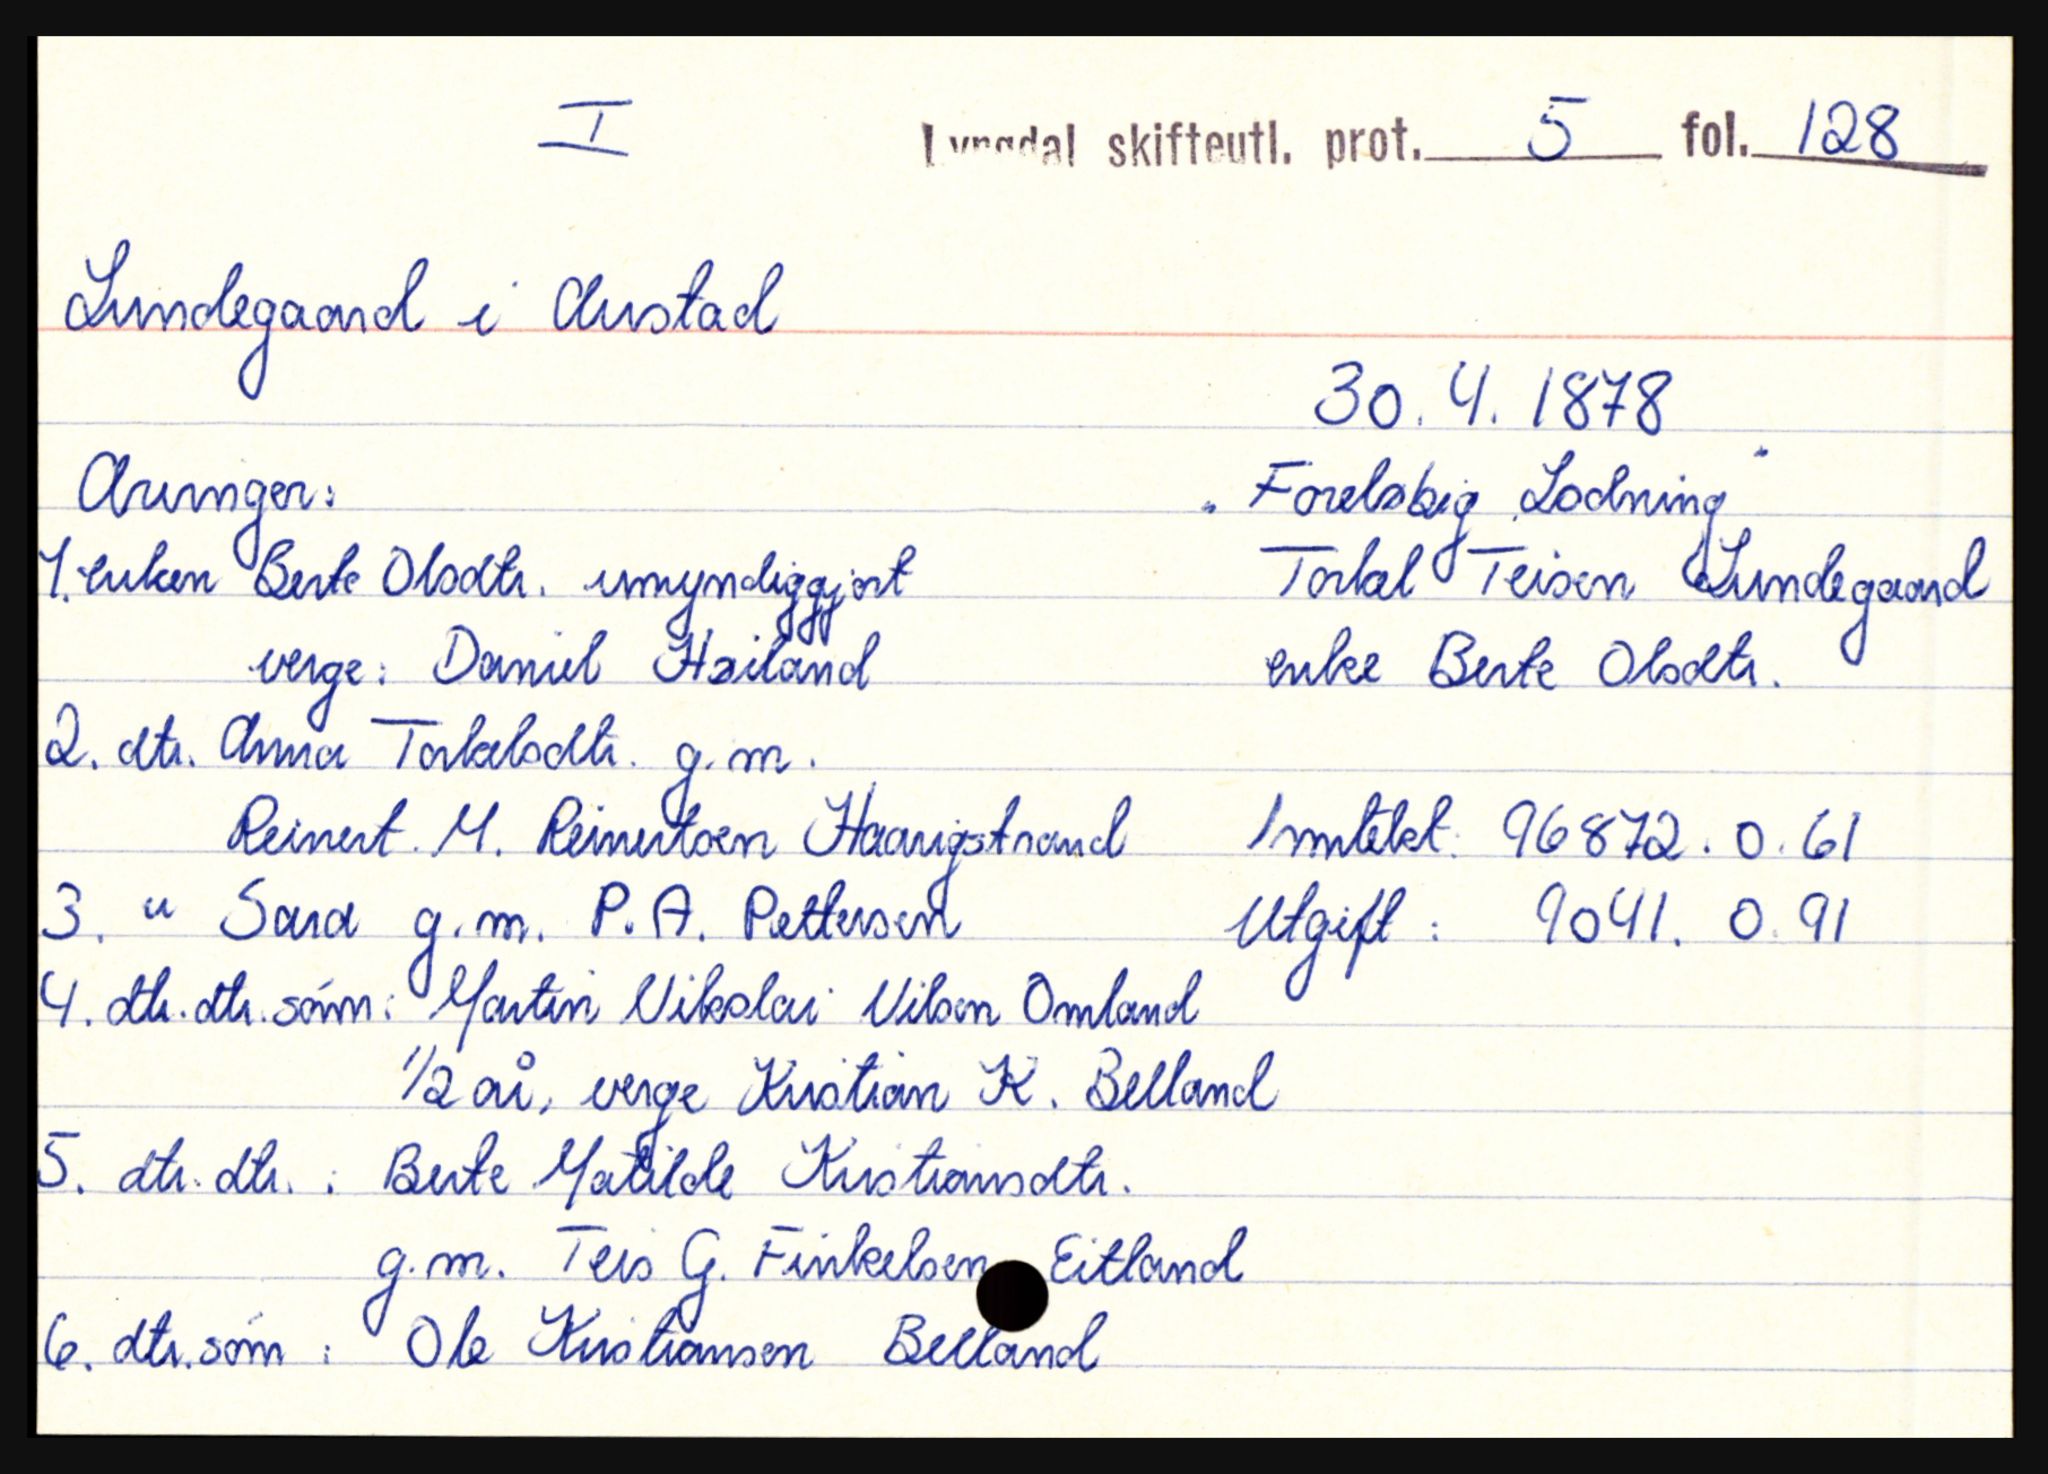 I
Lyngdal skifteutl. prot. 5 fol. 128
Lundegaard i Austad
30.4.1878
Arvinger:
" Foreløbig Lodning "
1. enken Berte Olsdtr. umyndiggjort
Torkel Teisen Lundegaard
verge: Daniel Høiland
enke Berte Olsdtr.
2. dtr. Anna Torkelsdtr. g.m.
Reinert. M. Reinertsen Haarigstrand
Inntekt: 96872. 0. 61
3. " Sara g.m. P.A. Pettersen
Utgift: 9041. 0. 91
4. dtr.dtr.sønn: Martin Nikolai Nilsen Omland
1/2 år, verge Kristian K. Belland
5. dtr.dtr.: Berte Matilde Kristiansdtr.
g.m. Teis G. Finkelsen Eitland
6. dtr.sønn: Ole Kristiansen Belland